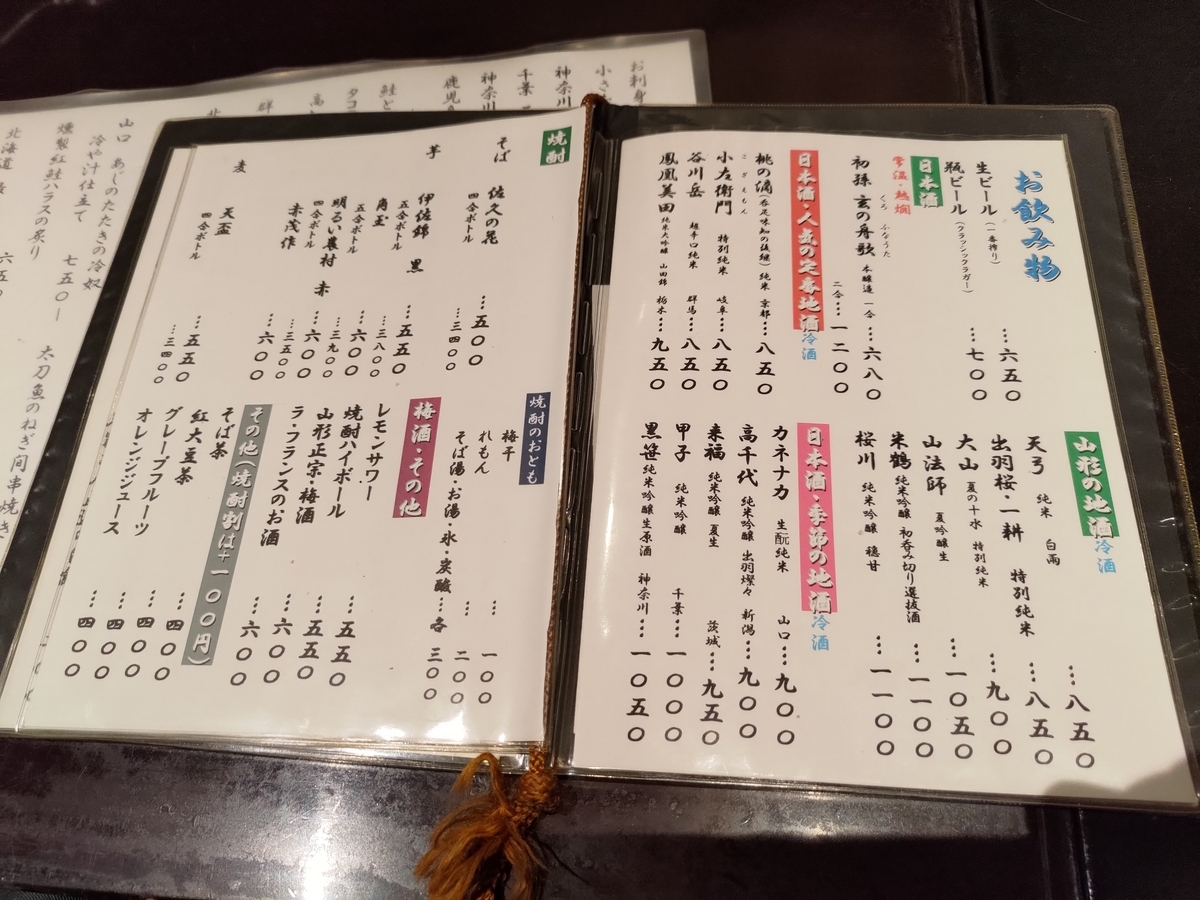 お飲み物
生ビール(一番搾り)…六五〇
瓶ビール(クラシックラガー)…七〇〇
日本酒
常温・熱燗
初孫 玄の舟歌 本醸造 一合…六八〇
くろ ふなうた
二合…一二〇〇
日本酒・人気の定番地酒 冷酒
桃の滴(呑足味知の後継)純米 京都…八五〇
こざえもん
小左衛門 特別純米 岐阜…八五〇
谷川岳 超辛口純米 群馬…八五〇
鳳凰美田 純米大吟醸 山田錦 栃木…九五〇
山形の地酒 冷酒
天弓 純米 白雨…八五〇
出羽桜・一耕 特別純米…八五〇
大山 夏の十水 特別純米…九〇〇
山法師 夏吟醸生…一〇五〇
米鶴 純米吟醸 初呑み切り選抜酒…一一〇〇
桜川 純米吟醸 穏甘…一一〇〇
日本酒・季節の地酒 冷酒
カネナカ 生酛純米 山口…九〇〇
高千代 純米吟醸 出羽燦々 新潟…九〇〇
来福 純米吟醸 夏生 茨城…九五〇
甲子 純米吟醸 千葉…一〇〇〇
黒笹 純米吟醸生原酒 神奈川…一〇五〇
焼酎
そば 佐久の花…五〇〇
四合ボトル…三四〇〇
芋 伊佐錦 黒…五五〇
五合ボトル…三八〇〇
角玉…六〇〇
五合ボトル…三九〇〇
明るい農村 赤…六〇〇
四合ボトル…三五〇〇
赤茂作…六〇〇
麦 天盃…五五〇
四合ボトル…三四〇〇
焼酎のおとも
梅干…一〇〇
れもん…二〇〇
そば湯・お湯・氷・炭酸…各三〇〇
梅酒・その他
レモンサワー…五五〇
焼酎ハイボール…五五〇
山形正宗・梅酒…六〇〇
ラ・フランスのお酒…六〇〇
その他(焼酎割は+一〇〇円)
そば茶…四〇〇
紅大豆茶…四〇〇
グレープフルーツ…四〇〇
オレンジジュース…四〇〇
お刺身
小さ
神奈川
千葉
神奈川
鹿児
鮭と
タコ
高
群
北
山口 あじのたたきの冷奴
冷や汁仕立て 七五〇
燻製紅鮭ハラスの炙り
北海道
六五〇
太刀魚のねぎ間串焼き